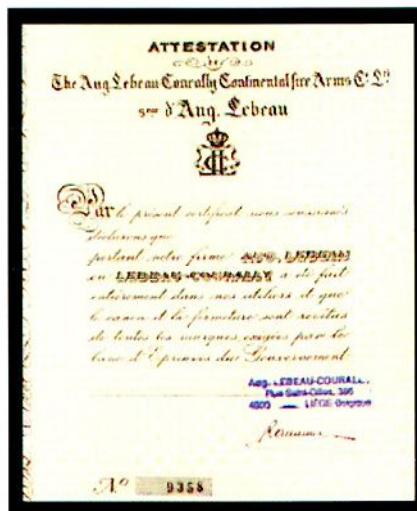 ATTESTATION
The Aug. Lebeau Courally Continental fire Arms Cº Lᵈ
sᵉᵘʳ d'Aug. Lebeau
Par le présent certificat nous soussignés
déclarons que
portant notre firme AUG. LEBEAU
ou LEBEAU-COURALLY a été fait
entièrement dans nos ateliers et que
le canon et la fermeture sont revêtus
de toutes les marques exigées par le
banc d'Epreuves du Gouvernement
Aug. LEBEAU-COURALLY
Rue Saint-Gilles, 386
4000 LIÈGE Belgique
Nº 9358